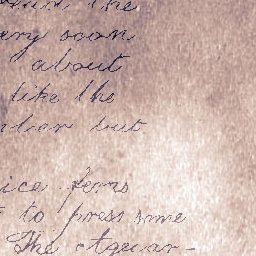 the
ery soon
about
like the
but
ice ferns
to press some
The Aquar-